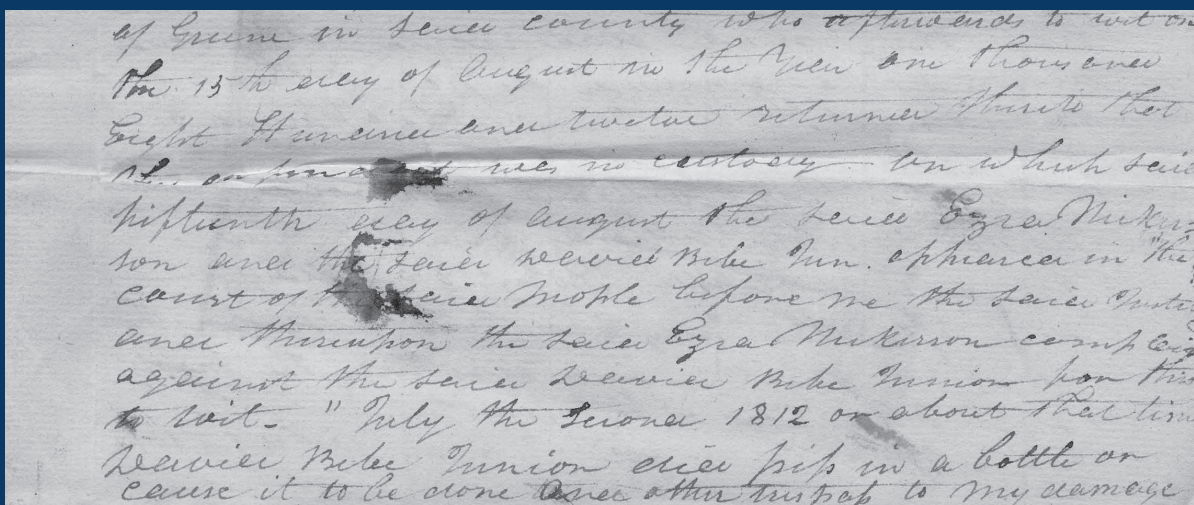 of Greene in said county who afterwards to wit on
the 15th day of August in the Year one thousand
Eight Hundred and twelve returned thereto that
the defendant was in custody on which said
fifteenth day of August the said Ezra Nicker-
son and the said David Bebe Jun. appeared in the
court of the said People before me the said Justi
and thereupon the said Ezra Nickerson compl
against the said David Bebe Junior for this
to wit. " July the second 1812 or about that tim
David Bebe Junior did piss in a bottle or
cause it to be done and other trespass to my damage